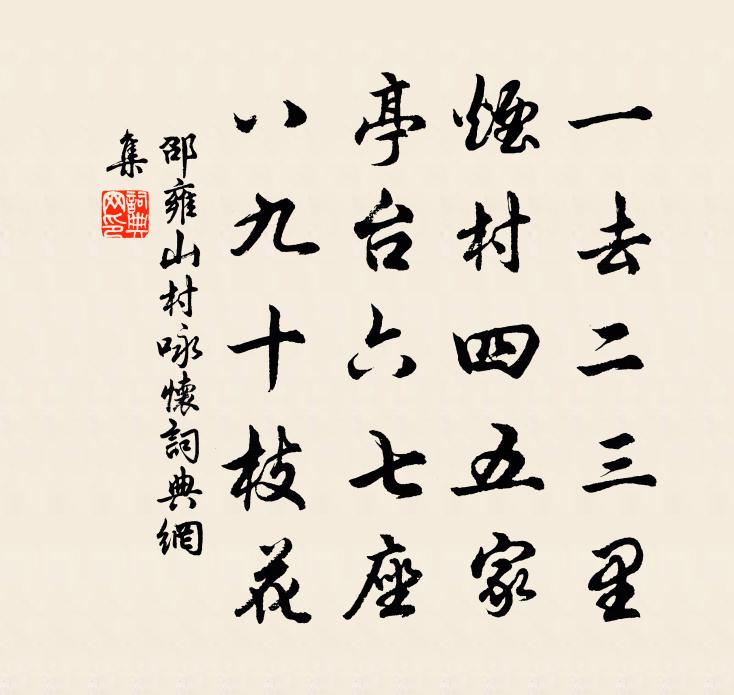 一去二三里
煙村四五家
亭台六七座
八九十枝花
邵雍山村咏懷詞典網
集
詞典
网印